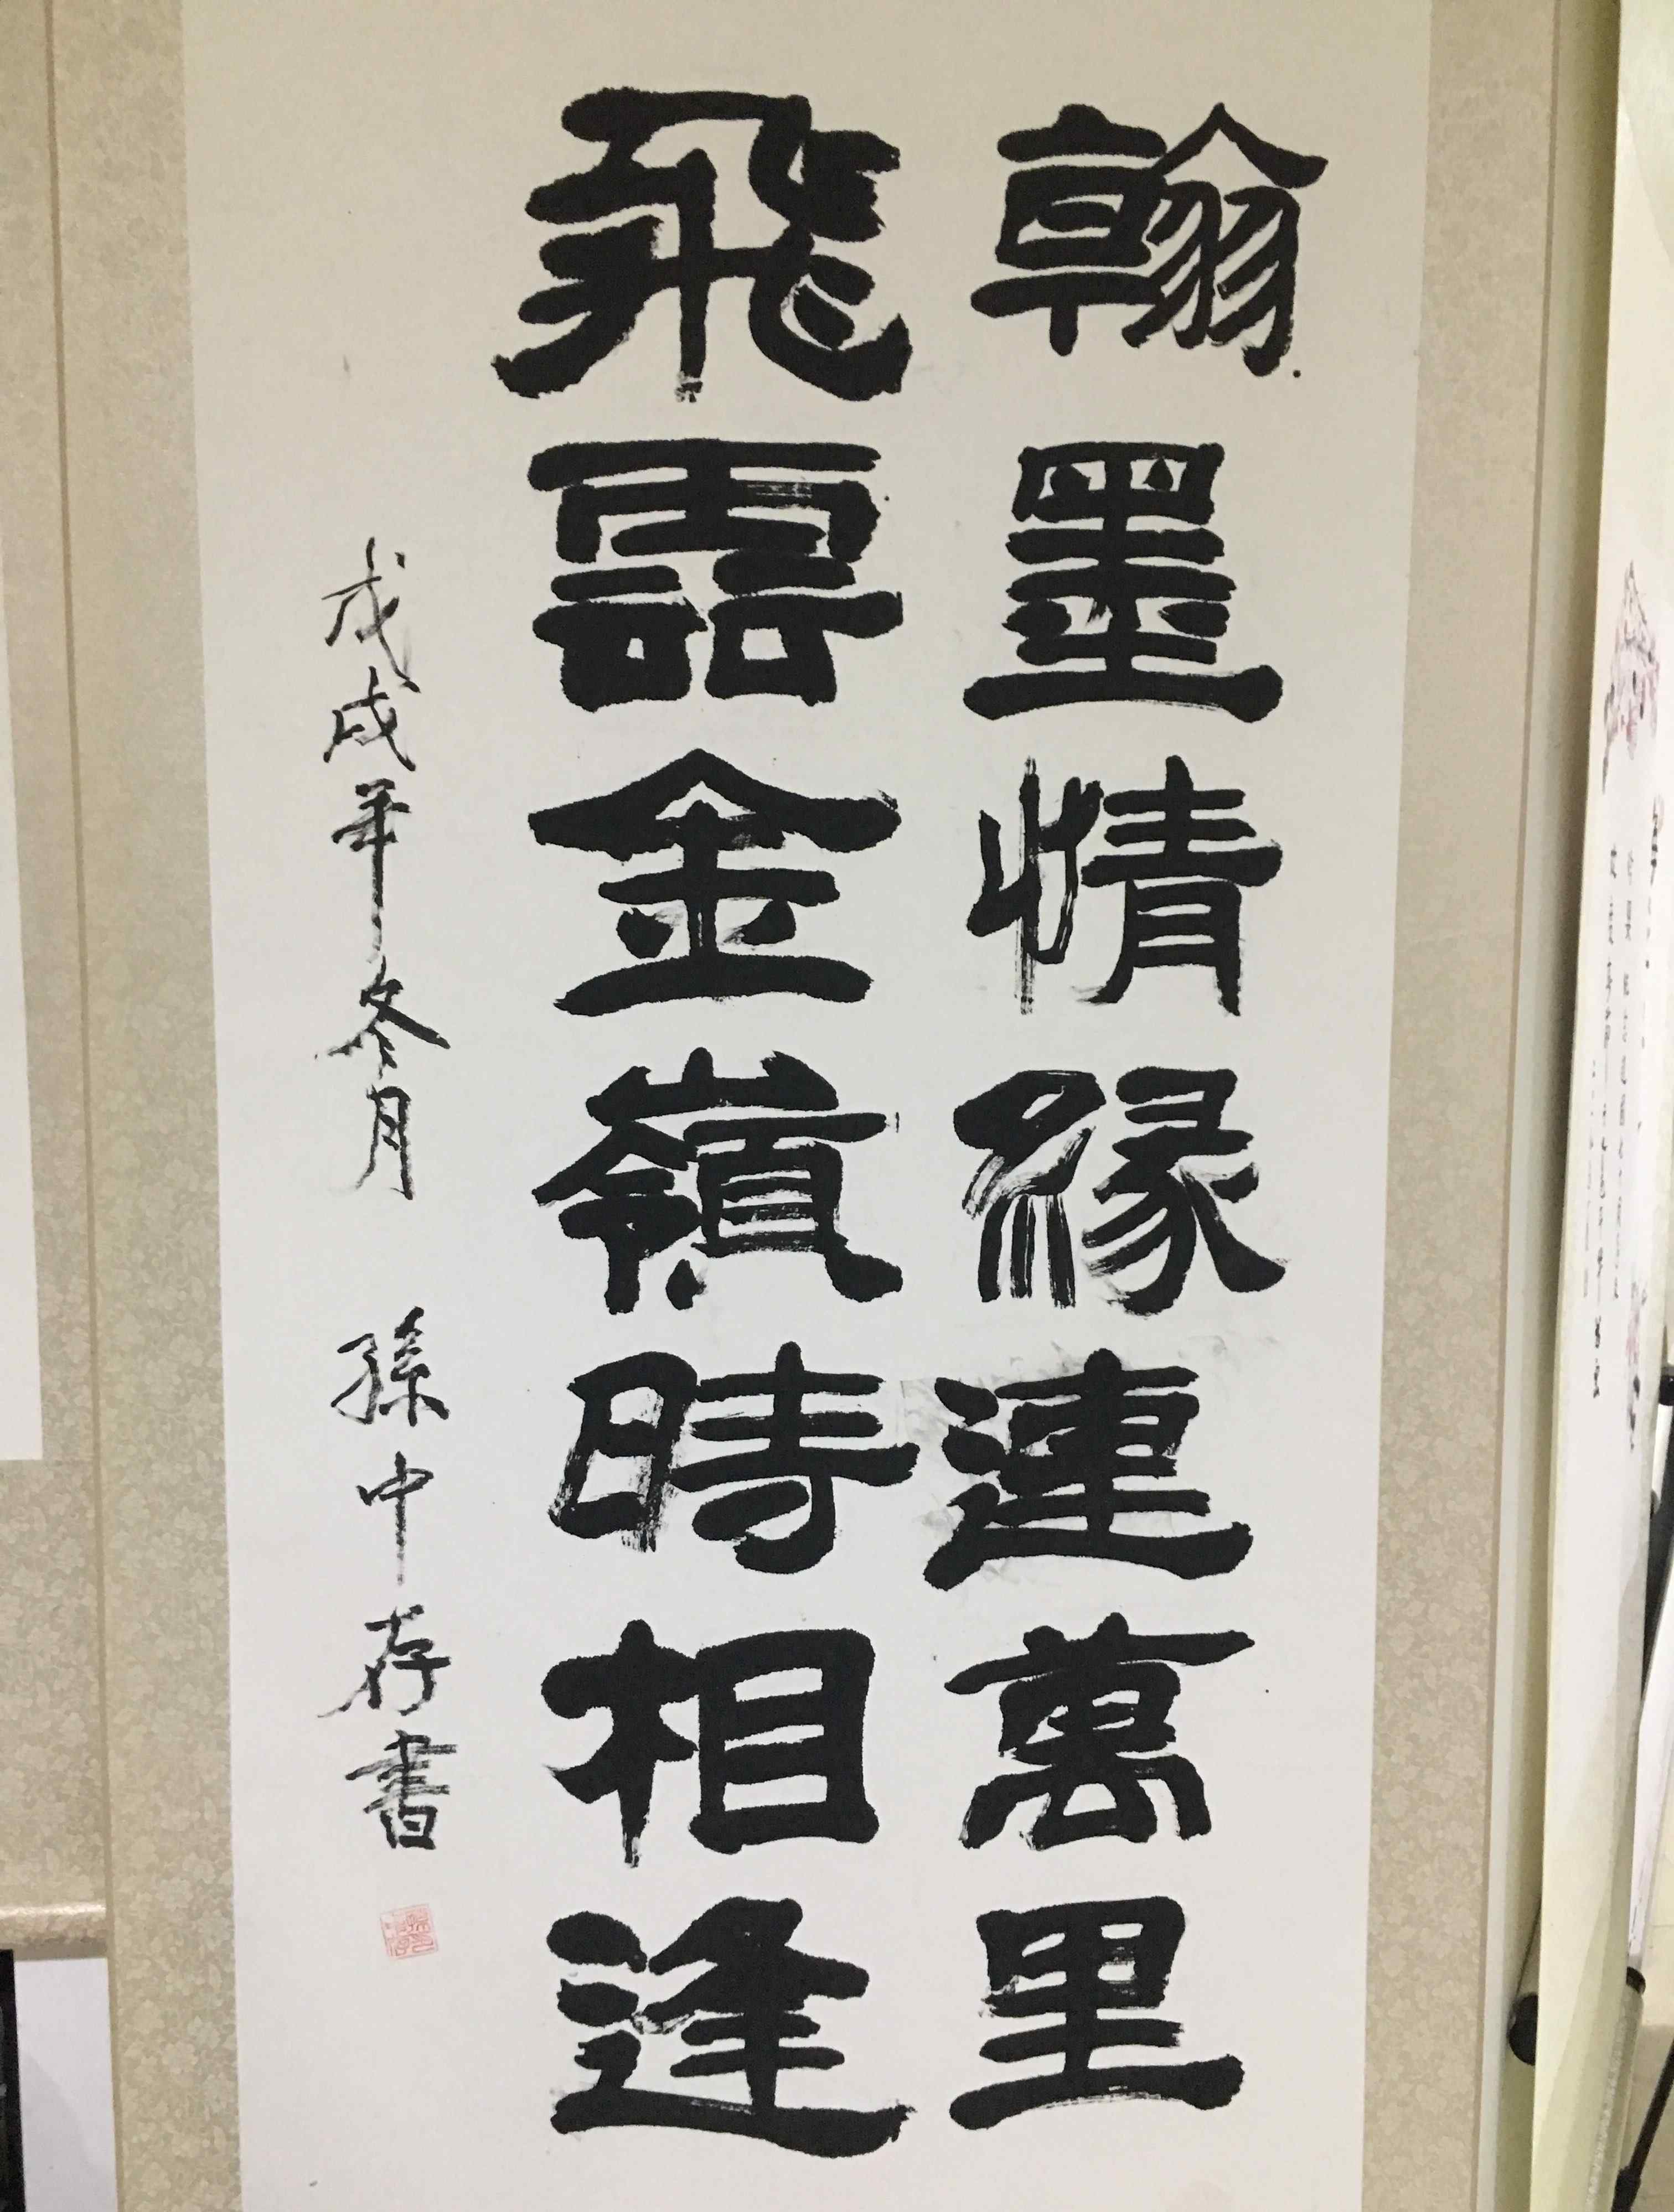 翰墨情緣連萬里
飛雲金嶺時相逢
戊戌年冬月 孫中存書